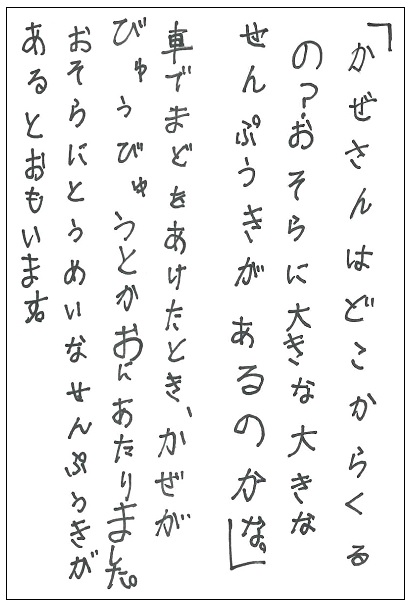 「かぜさんはどこからくる
の?おそらに大きな大きな
せんぷうきがあるのかな。」
車でまどをあけたとき、かぜが
びゅうびゅうとかおにあたりました。
おそらにとうめいなせんぷうきが
あるとおもいます。